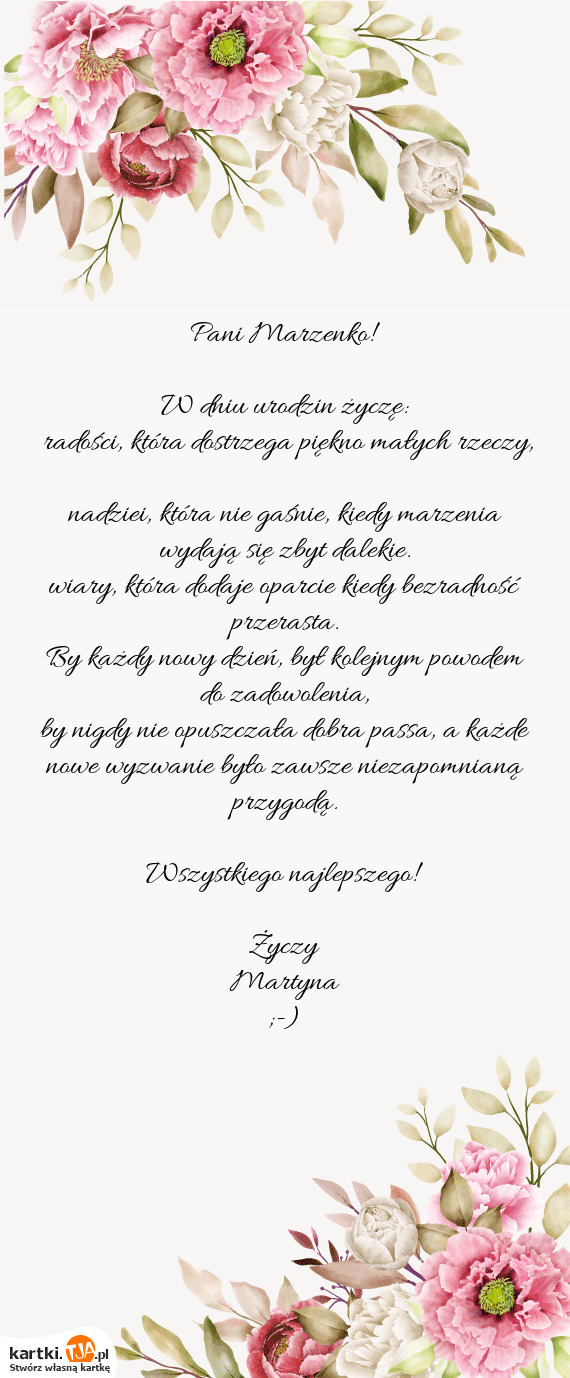 Pani Marzenko!
W dniu urodzin życzę:
radości, która dostrzega piękno małych rzeczy,
nadziei, która nie gaśnie, kiedy marzenia
wydają się zbyt dalekie.
wiary, która dodaje oparcie kiedy bezradność
przerasta.
By każdy nowy dzień, był kolejnym powodem
do zadowolenia,
by nigdy nie opuszczała dobra passa, a każde
nowe wyzwanie było zawsze niezapomnianą
przygodą.
Wszystkiego najlepszego!
Życzy
Martyna
;-)
kartki.TJA.pl
Stwórz własną kartkę